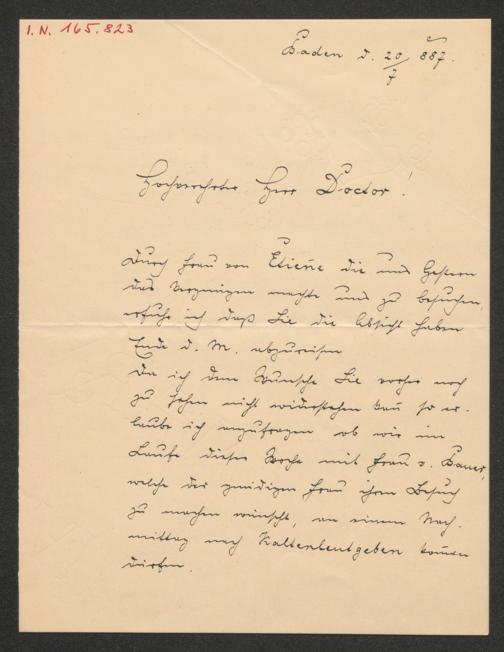 I.N. 165.823
Baden d. 20/7 887.
Hochverehrter Herr Doctor!
Durch Frau von Etienne die uns Gestern
das Vergnügen machte uns zu besuchen,
erfuhr ich daß Sie die Absicht haben
Ende d. M. abzureisen
Da ich dem Wunsche Sie vorher noch
zu sehen nicht widerstehen kan so er-
laube ich anzufragen ob wir im
Laufe dieser Woche mit Frau v. Bauer,
welche der gnädigen Frau ihren Besuch
zu machen wünscht, an einem Nach-
mittag nach Kaltenleutgeben komen
dürfen.